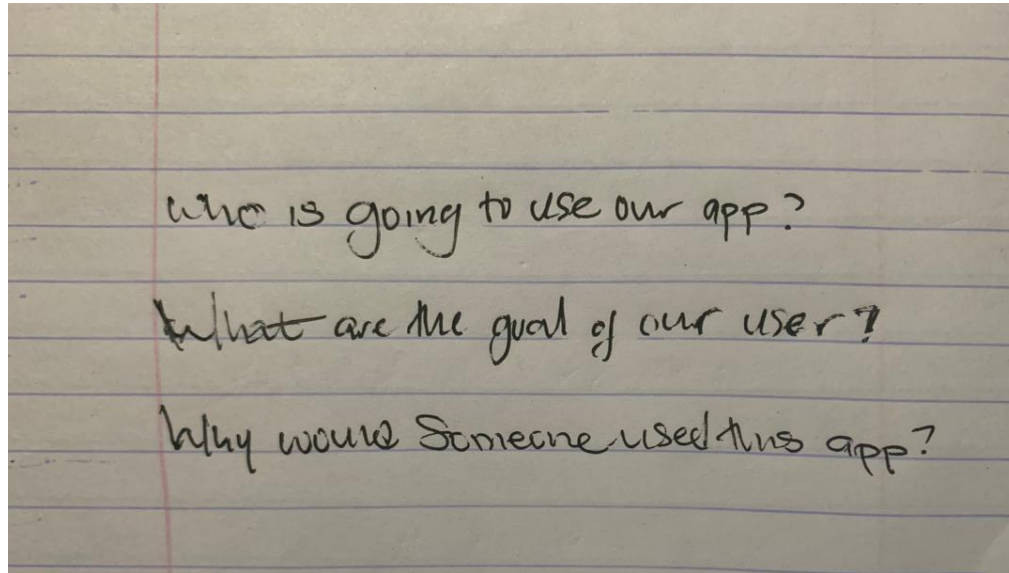 who is going to use our app?
What are the goal of our user?
Why would Someone used this app?